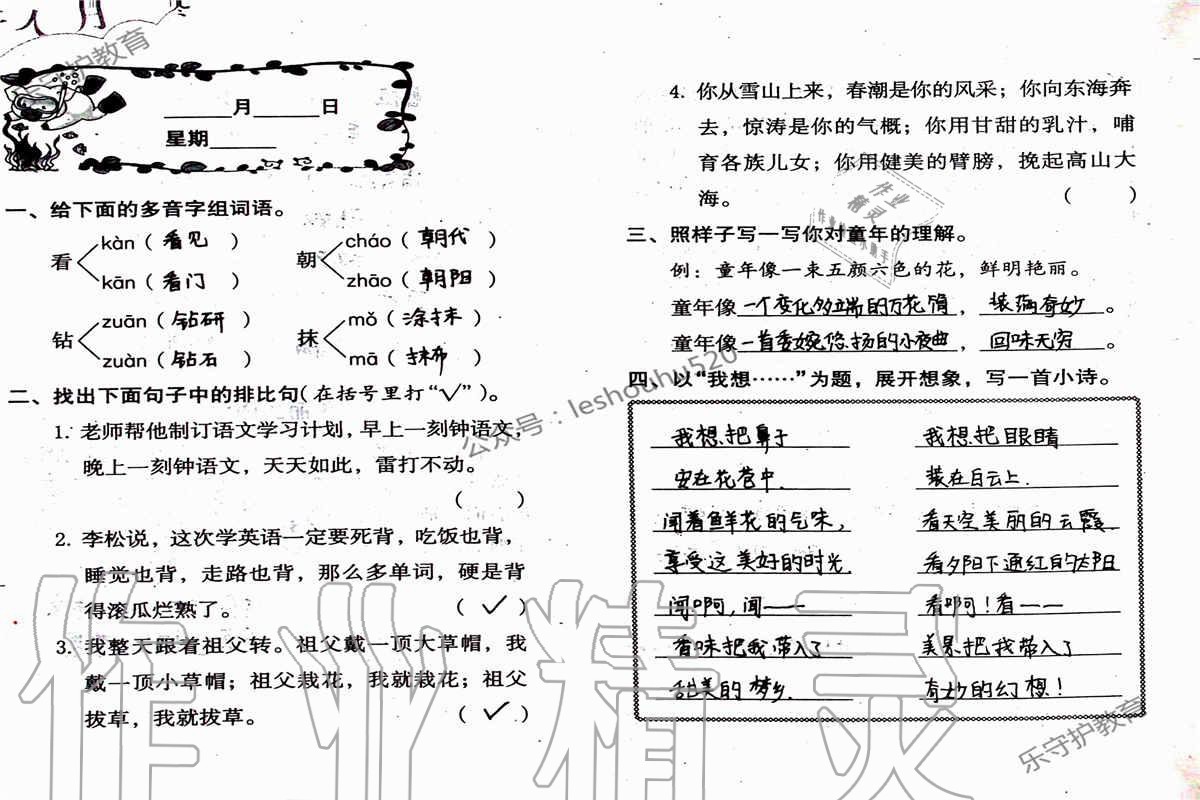 乐守护教育
____月____日
星期____
一、给下面的多音字组词语。
看 kàn（看见） kān（看门）
朝 cháo（朝代） zhāo（朝阳）
钻 zuān（钻研） zuàn（钻石）
抹 mǒ（涂抹） mā（抹布）
二、找出下面句子中的排比句(在括号里打“√”)。
1. 老师帮他制订语文学习计划，早上一刻钟语文，
晚上一刻钟语文，天天如此，雷打不动。
（ ）
2. 李松说，这次学英语一定要死背，吃饭也背，
睡觉也背，走路也背，那么多单词，硬是背
得滚瓜烂熟了。（ √ ）
3. 我整天跟着祖父转。祖父戴一顶大草帽，我
戴一顶小草帽；祖父栽花，我就栽花；祖父
拔草，我就拔草。（ √ ）
4. 你从雪山上来，春潮是你的风采；你向东海奔
去，惊涛是你的气概；你用甘甜的乳汁，哺
育各族儿女；你用健美的臂膀，挽起高山大
海。（ ）
三、照样子写一写你对童年的理解。
例：童年像一束五颜六色的花，鲜明艳丽。
童年像一个变化多端的万花筒，装满奇妙。
童年像一首委婉悠扬的小夜曲，回味无穷。
四、以“我想……”为题，展开想象，写一首小诗。
我想把鼻子
安在花苞中.
闻着鲜花的气味，
享受这美好的时光.
闻啊，闻——
香味把我带入了
甜美的梦乡.
我想把眼睛
装在白云上.
看天空美丽的云霞.
看夕阳下通红的太阳
看啊！看——
美景把我带入了
奇妙的幻想！
公众号：leshouhu520
作业精灵
作业
精灵
乐守护教育